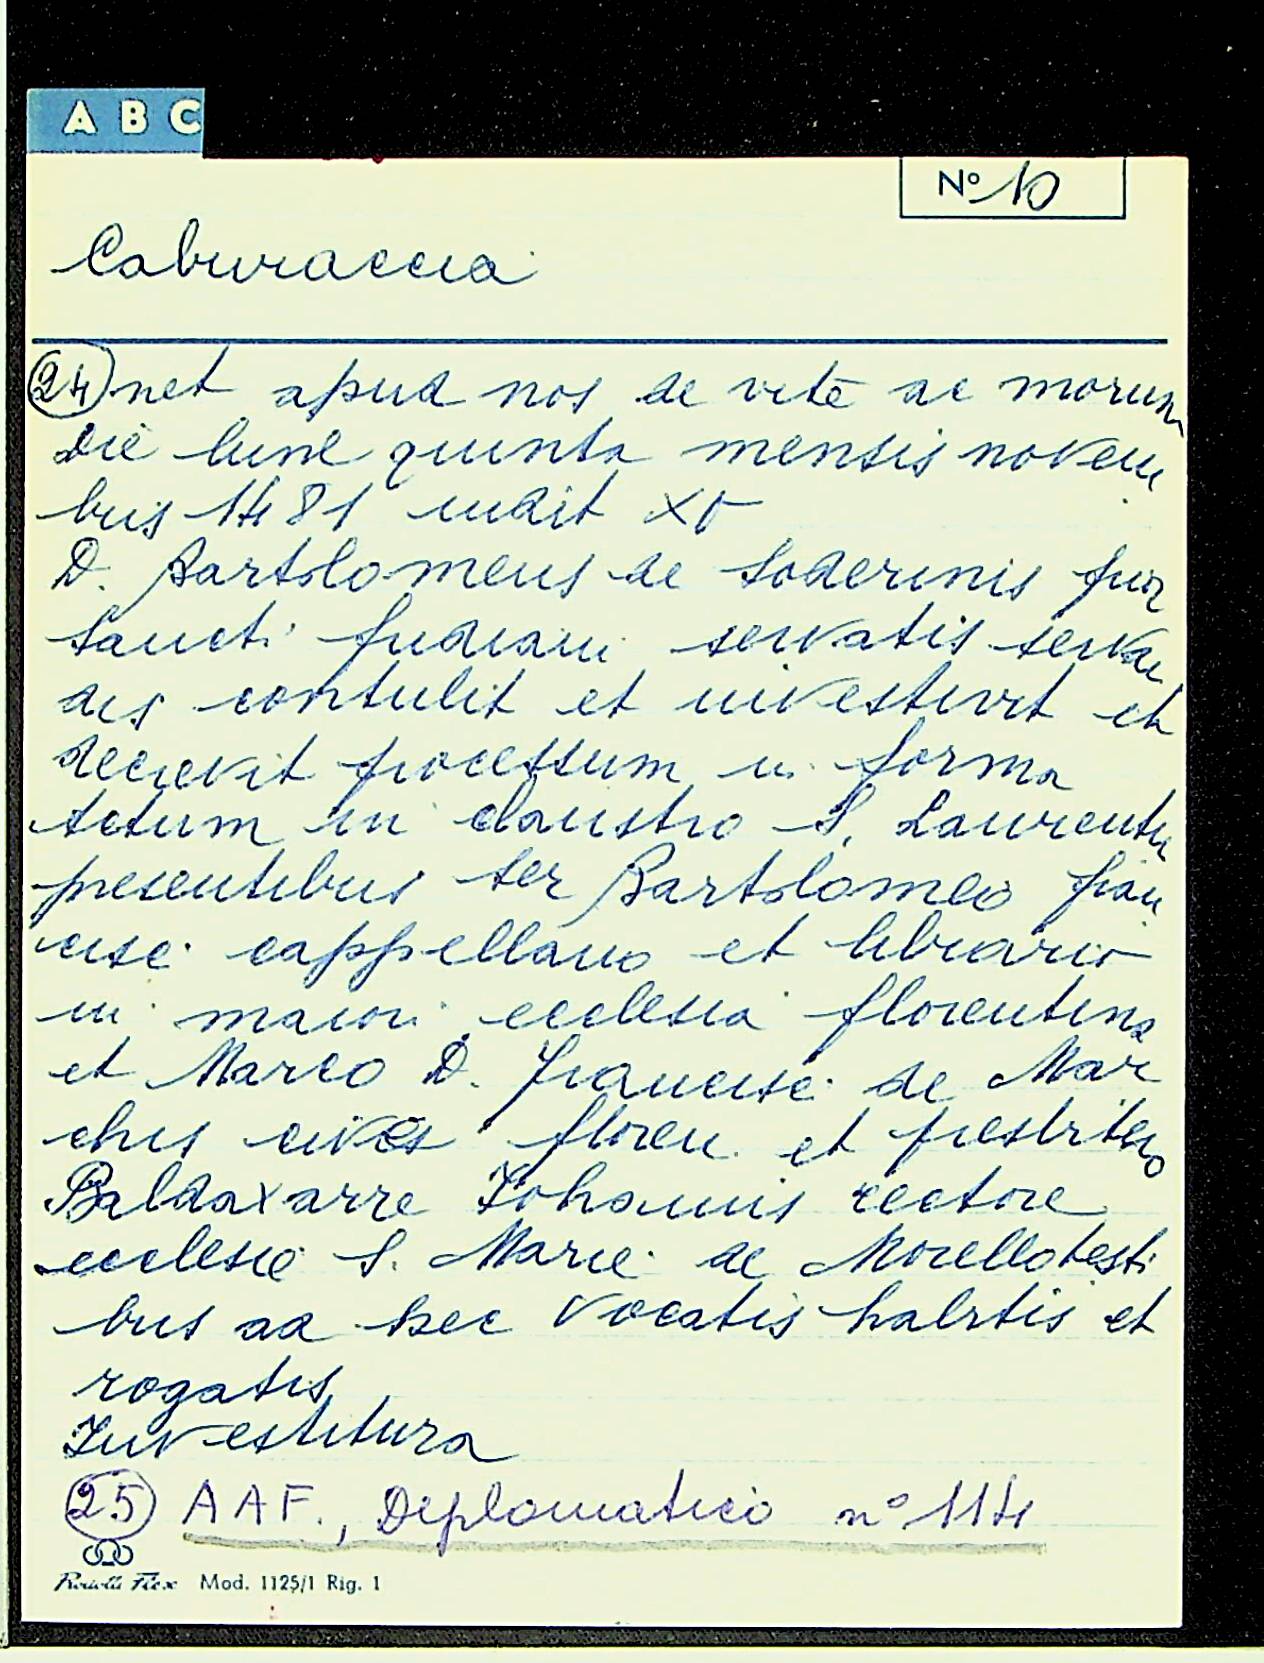 A B C
Nº 10
Caburaccia
24 net apud nos de vite ac morum
die lune quinta mensis novem
bris 1481 indit XV
D. Bartolomeus de Soderinis prior
Sancti fridiani servatis servan
dis contulit et investivit et
decrevit processum in forma
actum in claustro S. Laurentii
presentibus ser Bartolomeo fran
cisci cappellano et librario
in maiori ecclesia florentina
et Marco D. Francisci de Mar
chis cives floren. et presbitero
Baldaxarre Johannis rectore
ecclesie S. Marie de Morello testi
bus ad hec vocatis habitis et
rogatis
Investitura
25 AAF., Diplomatico nº 114
Mod. 1125/1 Rig. 1